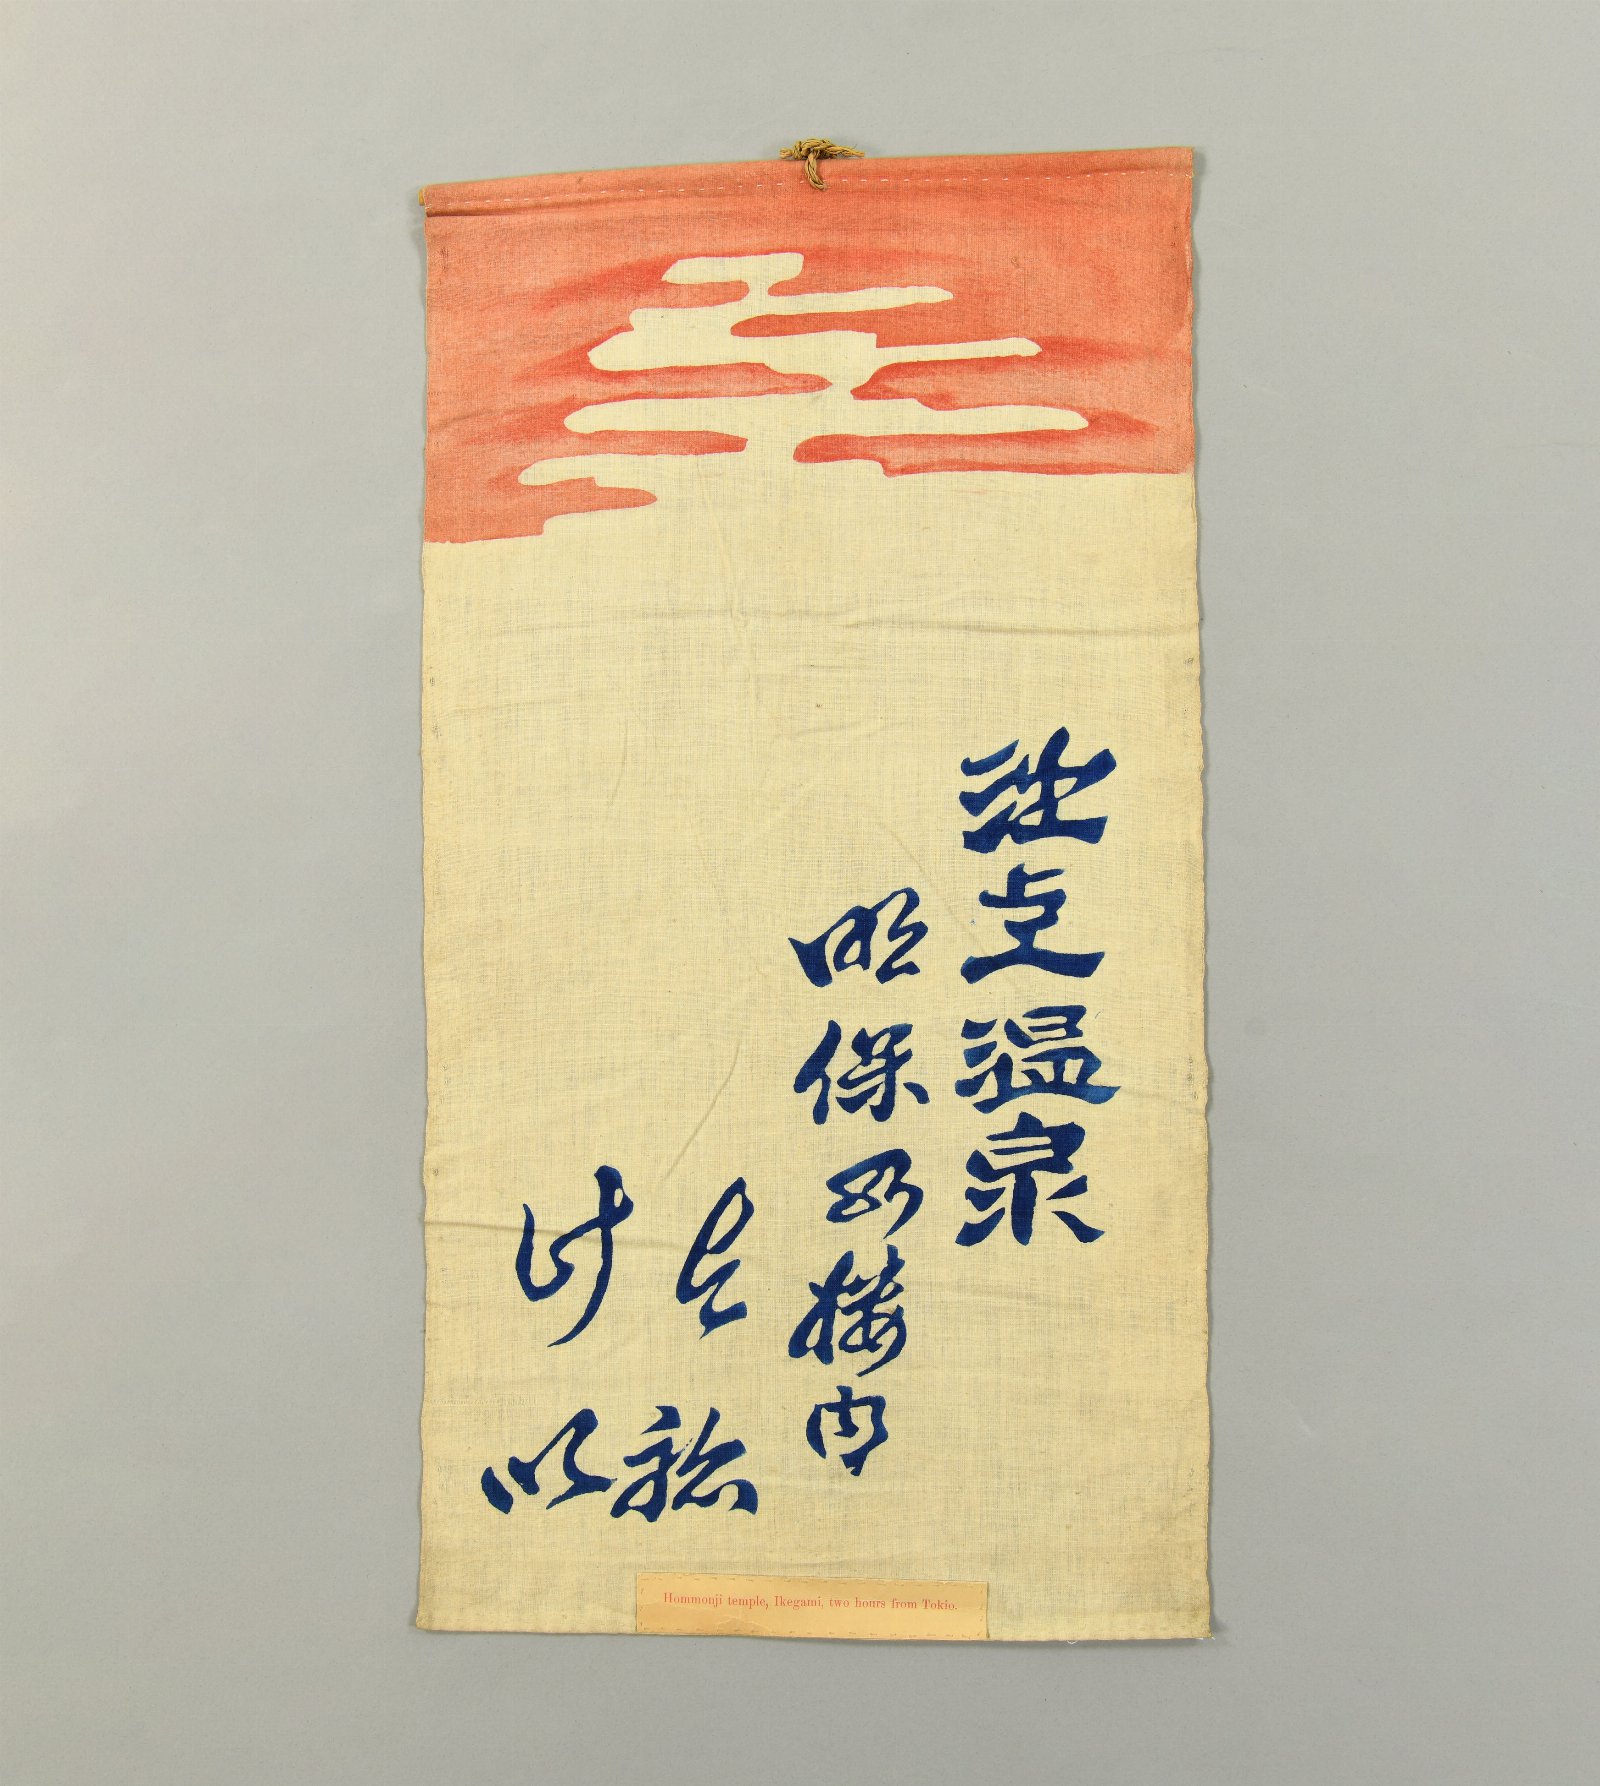 池上温泉
明保野楼内
Hommonji temple, Ikegami, two hours from Tokio.